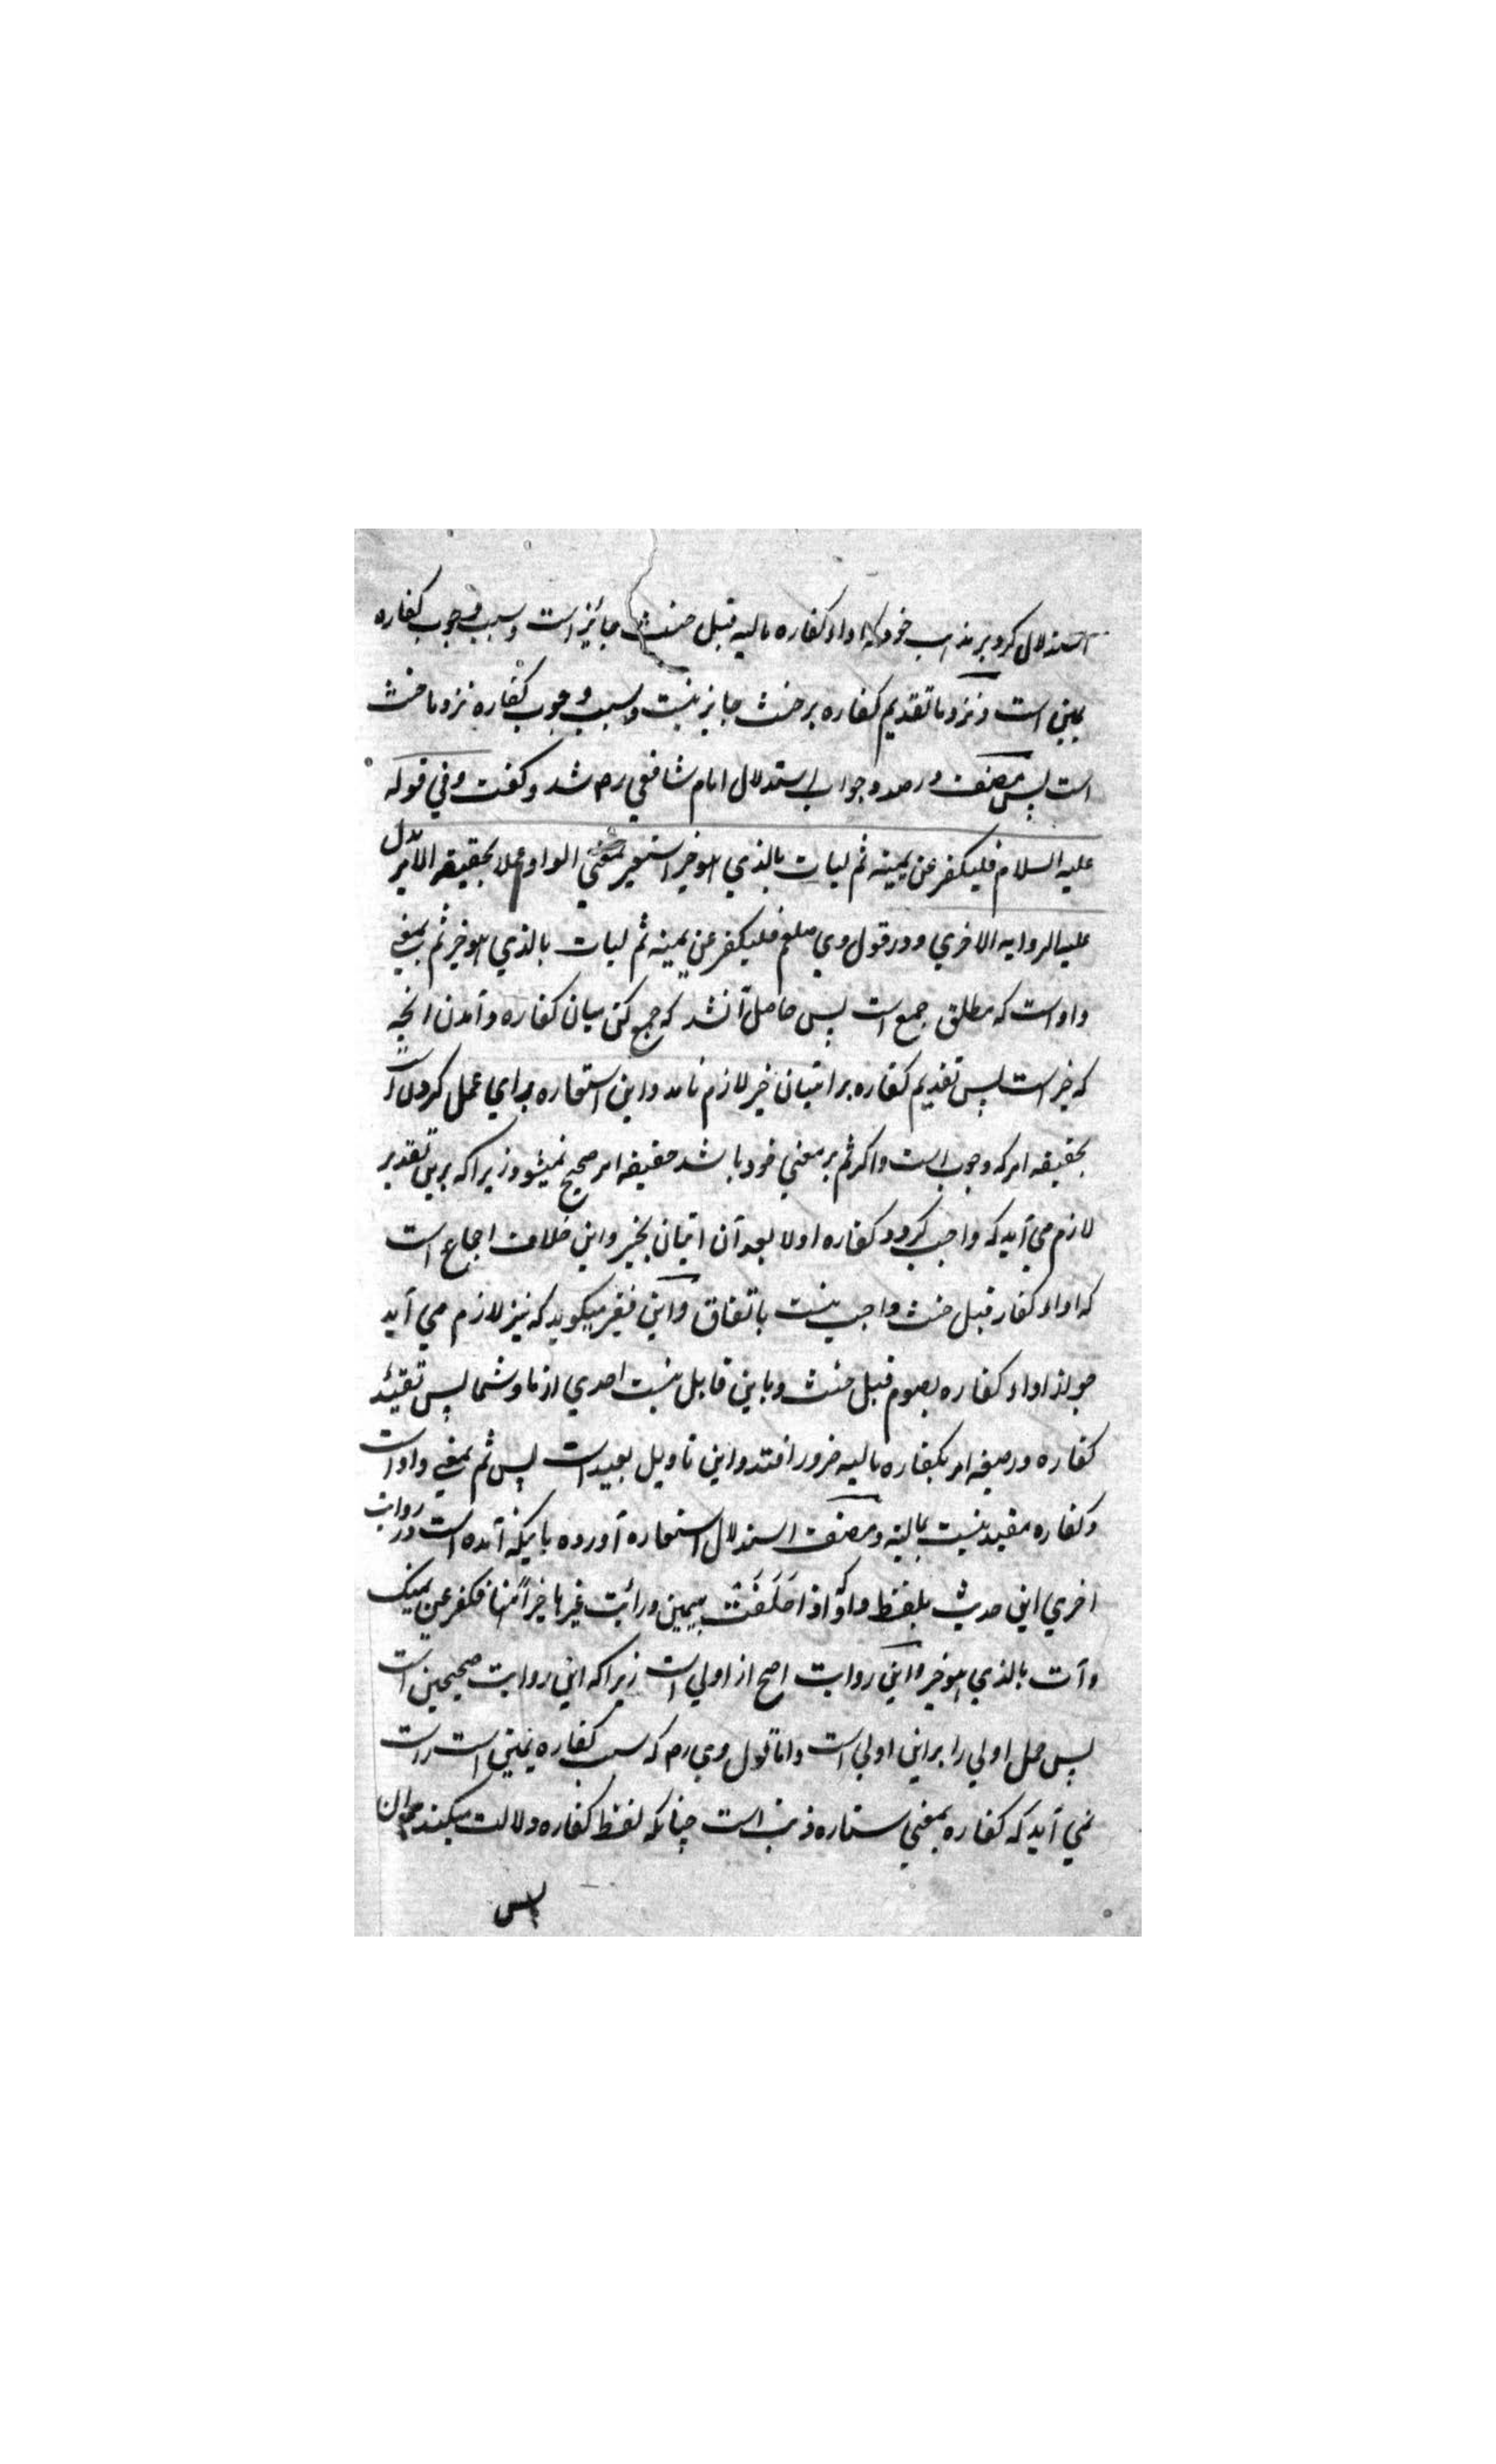 استدلال کرد بر مذهب خود که اداء کفاره مالیه قبل حنث جائز است و سبب وجوب کفاره
یمین است و نزد ما تقدیم کفاره بر حنث جایز نیست و سبب وجوب کفاره نزد ما حنث
است پس مصنف در صدد جواب استدلال امام شافعی رح شد و گفت وفی قوله
علیه السلام فلیکفر عن یمینه ثم لیات بالذی هو خیر استعیر بمعنی الواو عملا بحقیقه الامر یدل
علیه الروایه الاخری و در قول وی صلعم فلیکفر عن یمینه ثم لیات بالذی هو خیر ثم بمعنی
واو است که مطلق جمع است پس حاصل آنشد که جمع کن میان کفاره و آمدن انچه
که خیر است پس تقدیم کفاره بر اتیان خیر لازم نامد و این استعاره برای عمل کردن است
بحقیقه امر که وجوب است و اگر ثم بر معنی خود باشد حقیقه امر صحیح نمیشود زیرا که برین تقدیر
لازم می آید که واجب کردد کفاره اولا بعد آن اتیان بخیر و این خلاف اجماع است
که اداء کفار قبل حنث واجب نیست باتفاق و این فقیر میکوید که نیز لازم می آید
جواز اداء کفاره بصوم قبل حنث و باین قایل نیست احدی از ما و شما پس تقیید
کفاره در صیغه امر بکفاره مالیه ضرور افتد و این تاویل بعید است پس ثم بمعنی واو است
و کفاره مقید نیست بمالیه و مصنف استدلال استعاره آورده باینکه آمده است در روایت
اخری این حدیث بلفظ واو که اذا حَلَفَتْ بیمین و رائت غیرها خیراً منها فکفر عن یمینک
و آت بالذی هو خیر و این روایت اصح از اولی است زیرا که این روایت صحیحین است
پس حمل اولی را بر این اولی است و اما قول وی رح که سبب کفاره یمین است راست
نمی آید که کفاره بمعنی ستاره ذنب است چنانکه لفظ کفاره دلالت میکند بران
پس